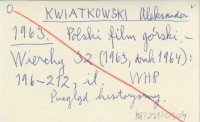 KWIATKOWSKI Aleksander
1963. Polski film górski. –
Wierchy 32 (1963, druk 1964):
196–212, il. WHP
Przegląd historyczny.